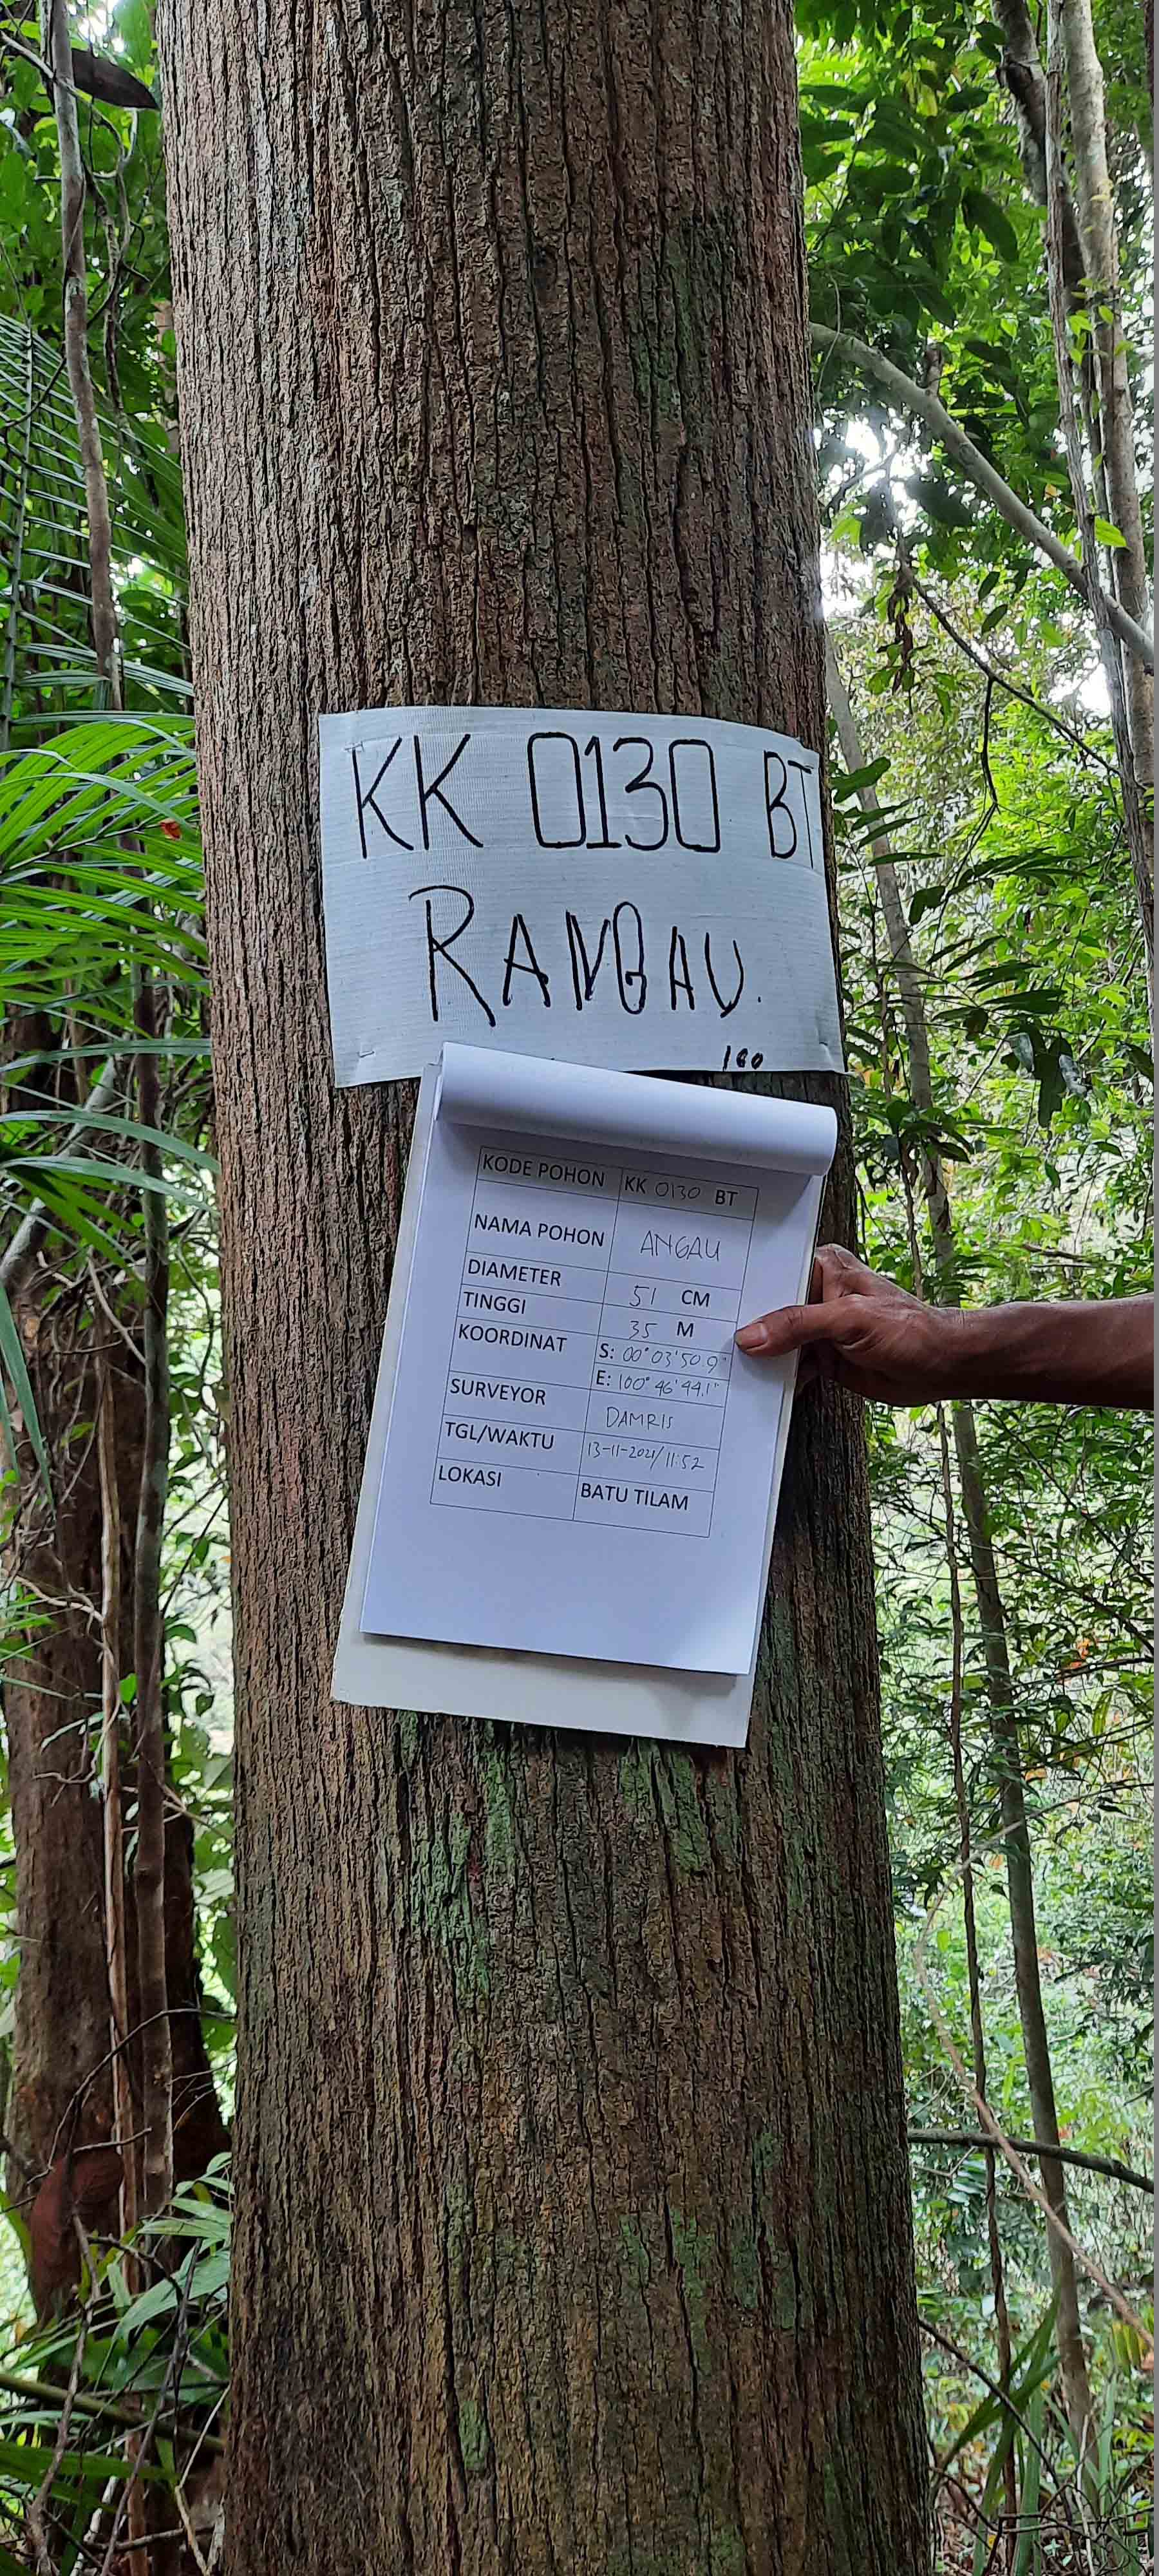 KK 0130 BT
RANGAU.
100
KODE POHON KK 0130 BT
NAMA POHON ANGAU
DIAMETER 51 CM
TINGGI 35 M
KOORDINAT S: 00° 03' 50.9"
E: 100° 46' 44.1"
SURVEYOR DAMRIS
TGL/WAKTU 13-11-2021/11:52
LOKASI BATU TILAM